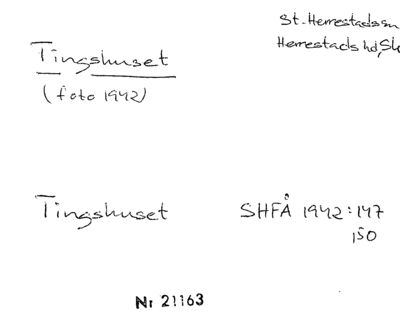 St. Herrestads sn
Herrestads hd, Sk
Tingshuset
(foto 1942)
Tingshuset SHFÅ 1942:147
150
Nr 21163